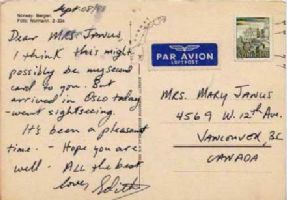 Norway. Bergen.
Sept. 08/
Dear Mrs. Janus,
I think this might
possibly be my second
card to you. But
arrived in Oslo today
- went sightseeing.
It's been a pleasant
time. - Hope you are
well - All the best
Love, Edith
PAR AVION
LUFTPOST
MRS. MARY JANUS
4569 W. 12th AVE.
VANCOUVER, BC
CANADA